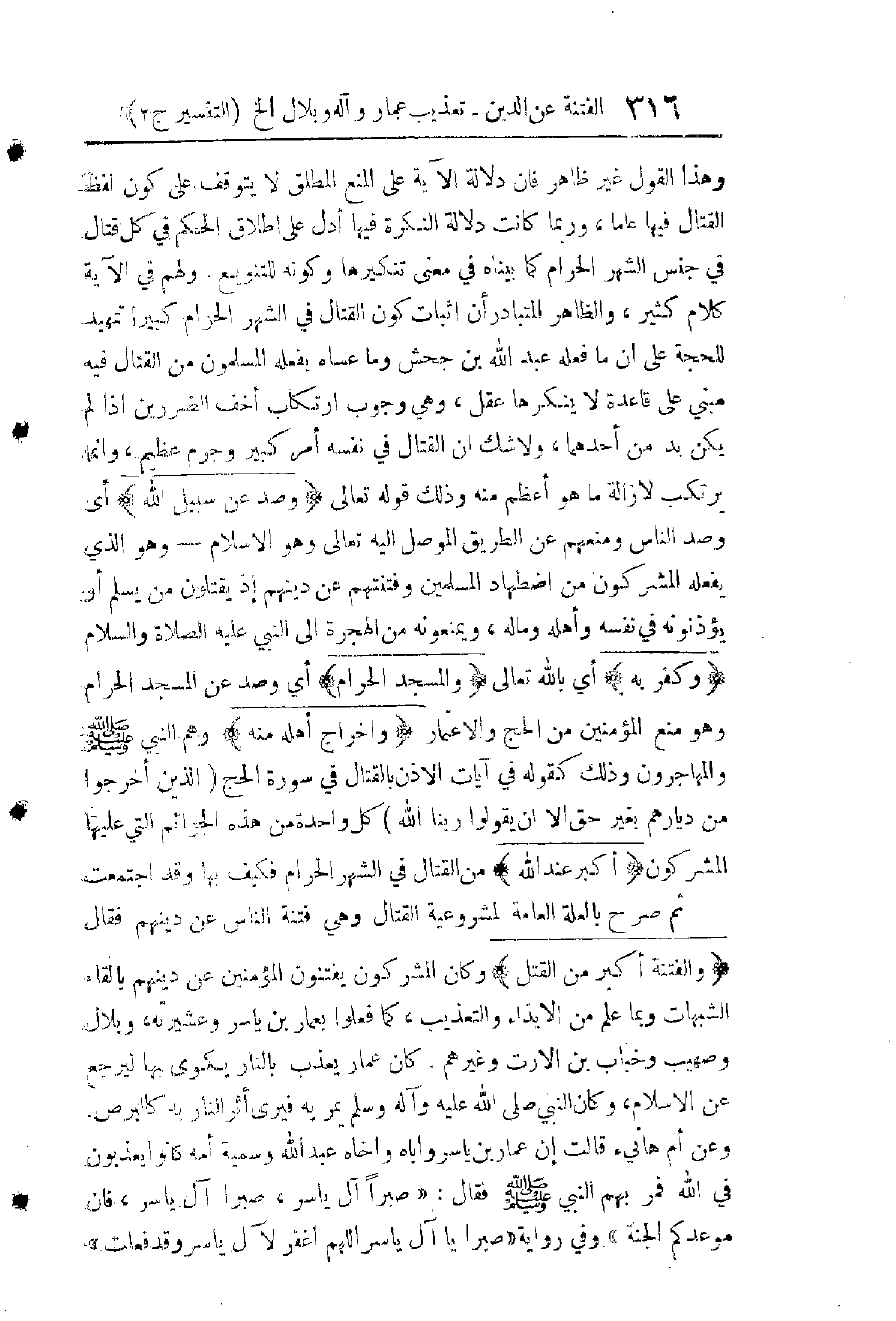 ٣١٦ الفتنة عن الدين ـ تعذيب عمار وآله وبلال الخ (التفسير ج٢)
وهذا القول غير ظاهر فان دلالة الآية على المنع المطلق لا يتوقف على كون لفظ
القتال فيها عاما ، وربما كانت دلالة النكرة فيها أدل على اطلاق الحكم في كل قتال
في جنس الشهر الحرام كما بيناه في معنى تنكيرها وكونه للتنويع . ولهم في الآية
كلام كثير ، والظاهر المتبادر أن اثبات كون القتال في الشهر الحرام كبيرا تمهيد
للحجة على ان ما فعله عبد الله بن جحش وما عساه يفعله المسلمون من القتال فيه
مبني على قاعدة لا ينكرها عقل ، وهي وجوب ارتكاب أخف الضررين اذا لم
يكن بد من أحدهما ، ولاشك ان القتال في نفسه أمر كبير وجرم عظيم ، وانما
يرتكب لازالة ما هو أعظم منه وذلك قوله تعالى ﴿ وصد عن سبيل الله ﴾ أي
وصد الناس ومنعهم عن الطريق الموصل اليه تعالى وهو الاسلام — وهو الذي
يفعله المشركون من اضطهاد المسلمين وفتنتهم عن دينهم إذ يقتلون من يسلم أو
يؤذنونه في نفسه وأهله وماله ، ويمنعونه من الهجرة الى النبي عليه الصلاة والسلام
﴿ وكفر به ﴾ أي بالله تعالى ﴿ والمسجد الحرام ﴾ أي وصد عن المسجد الحرام
وهو منع المؤمنين من الحج والاعتمار ﴿ واخراج أهله منه ﴾ وهم النبي ﷺ
والمهاجرون وذلك كقوله في آيات الاذن بالقتال في سورة الحج ( الذين أخرجوا
من ديارهم بغير حق الا ان يقولوا ربنا الله ) كل واحدة من هذه الجرائم التي عليها
المشركون ﴿ أكبر عند الله ﴾ من القتال في الشهر الحرام فكيف بها وقد اجتمعت
ثم صرح بالعلة العامة لمشروعية القتال وهي فتنة الناس عن دينهم فقال
﴿ والفتنة أكبر من القتل ﴾ وكان المشركون يفتنون المؤمنين عن دينهم بالقاء
الشبهات وبما علم من الايذاء والتعذيب ، كما فعلوا بعمار بن ياسر وعشيرته ، وبلال
وصهيب وخباب بن الارت وغيرهم . كان عمار يعذب بالنار يكوى بها ليرجع
عن الاسلام ، وكان النبي صلى الله عليه وآله وسلم يمر به فيرى أثر النار به كالبرص .
وعن أم هانيء قالت إن عمار بن ياسر واباه واخاه عبد الله وسمية أمه كانوا يعذبون
في الله فمر بهم النبي ﷺ فقال : « صبراً آل ياسر ، صبرا آل ياسر ، فان
موعدكم الجنة » وفي رواية « صبرا يا آل ياسر اللهم اغفر لآل ياسر وقد فعلت »